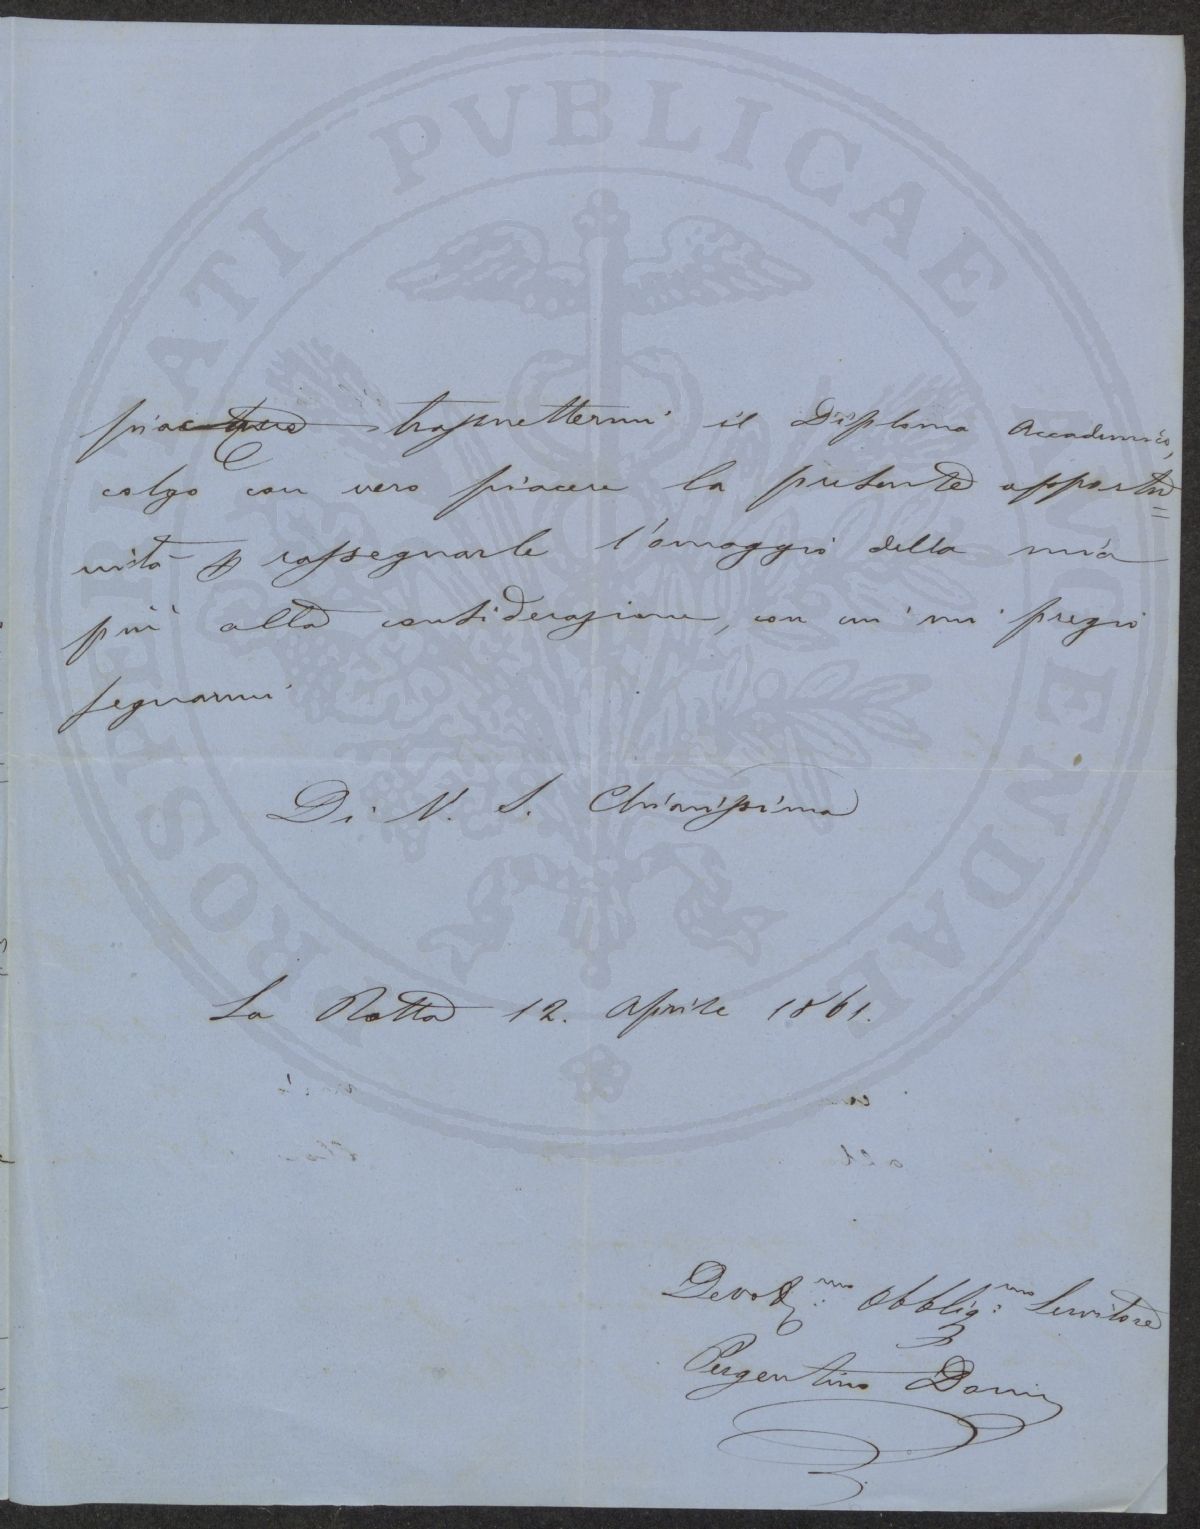 PROSPERITATI PVBLICAE AVGENDAE
trasmettermi il Diploma Accademico,
colgo con vero piacere la presente opportu=
nità p rassegnarle l'omaggio della mia
più alta considerazione, con cui mi pregio
segnarmi
Di V. S. Chiarissima
La Rotta 12. Aprile 1861.
Devot.mo Obblig.mo Servitore
Pergentino Doni